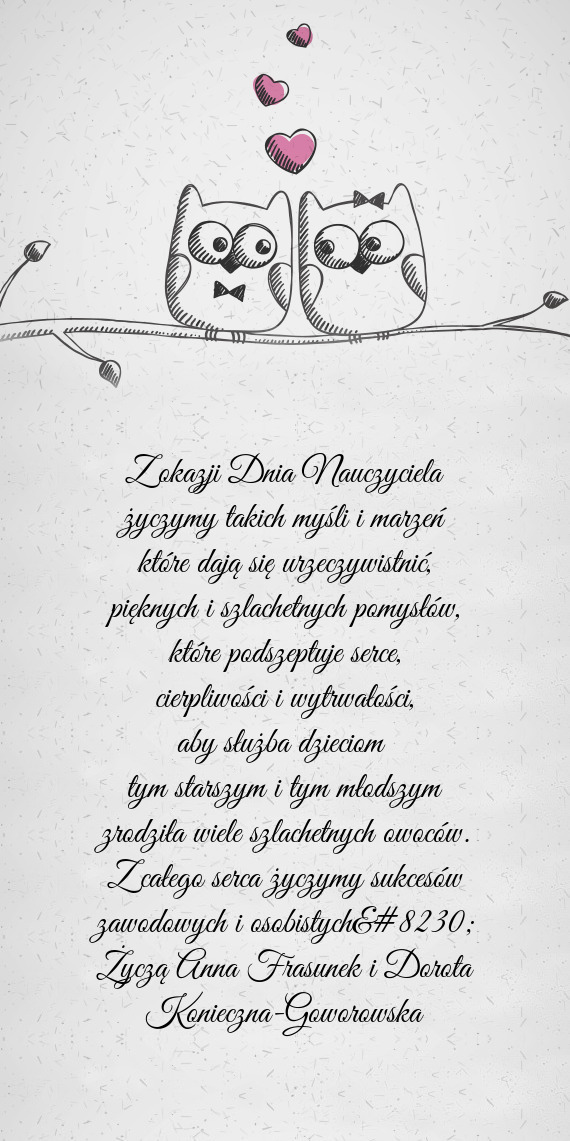 Z okazji Dnia Nauczyciela
życzymy takich myśli i marzeń
które dają się urzeczywistnić,
pięknych i szlachetnych pomysłów,
które podszeptuje serce,
cierpliwości i wytrwałości,
aby służba dzieciom
tym starszym i tym młodszym
zrodziła wiele szlachetnych owoców.
Z całego serca życzymy sukcesów
zawodowych i osobistych&#8230;
Życzą Anna Frasunek i Dorota
Konieczna-Goworowska